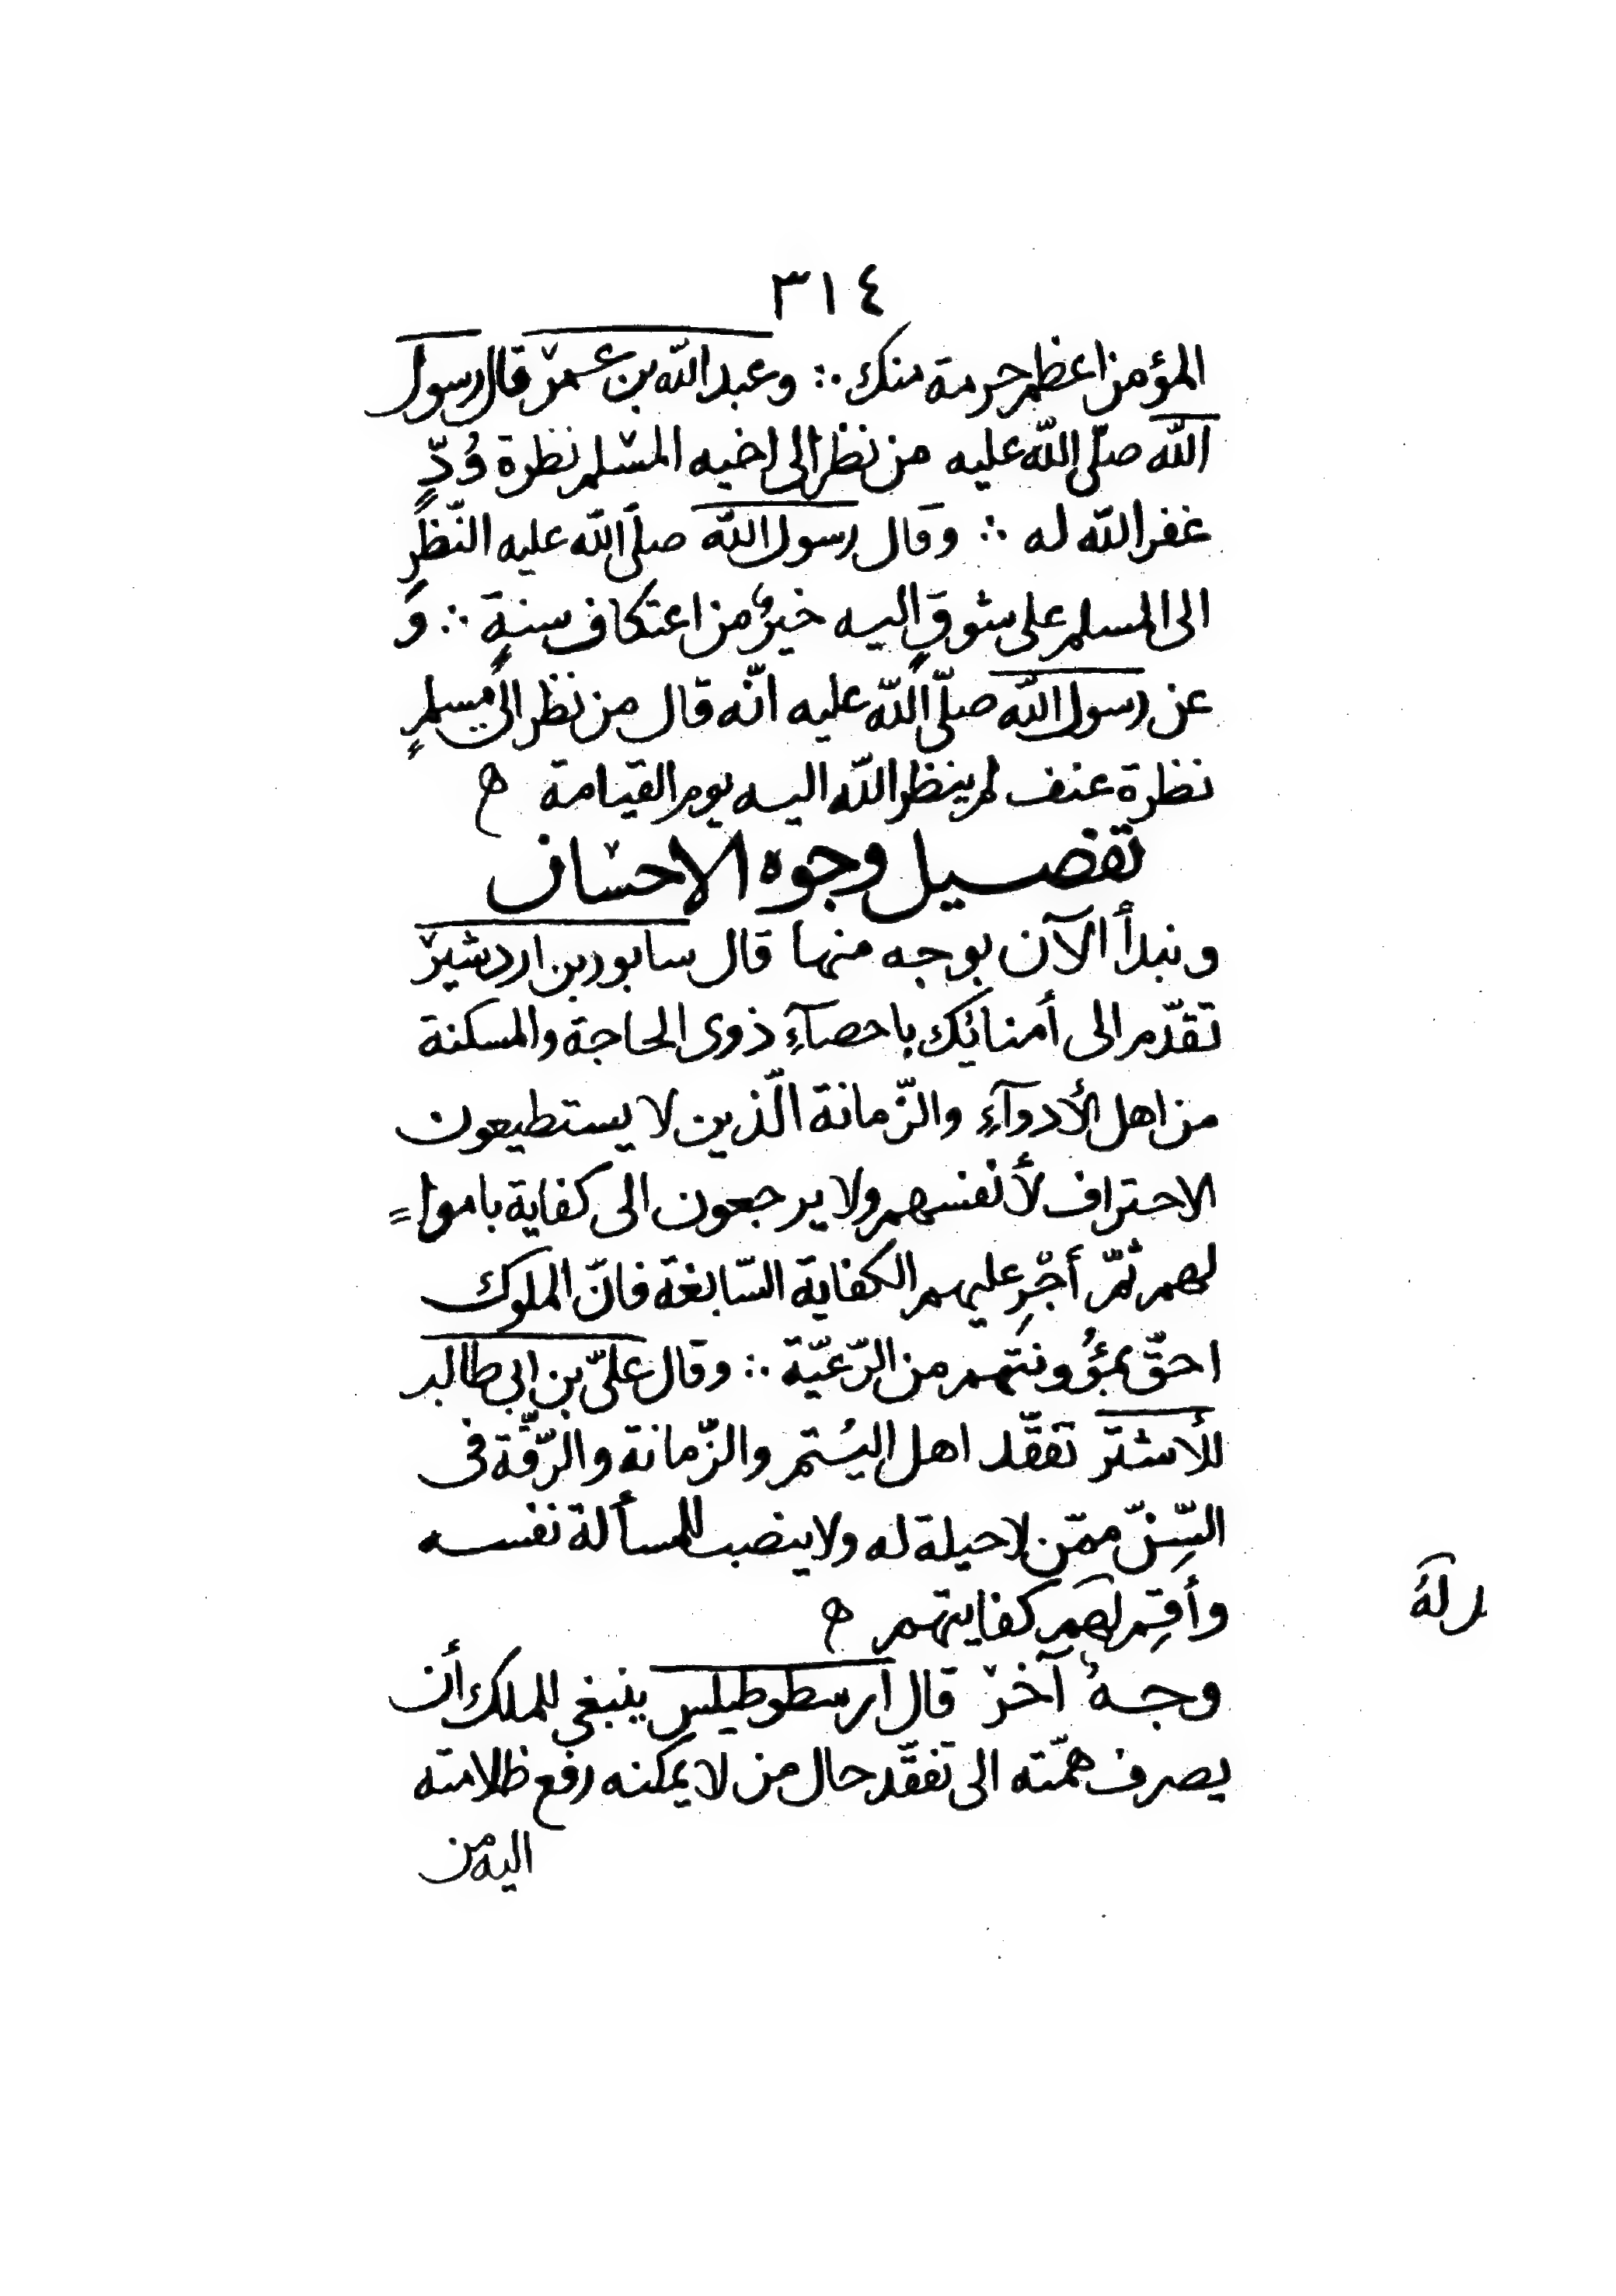 ٣١٤
المؤمن اعظم حرمة منك ∴ وعبد الله بن عمر قال رسول
الله صلّى الله عليه من نظر الى اخيه المسلم نظرة وُدٍّ
غفر الله له ∴ وقال رسول الله صلّى الله عليه النّظر
الى المسلم على شوقٍ اليه خيرٌ من اعتكاف سنةٍ ∴ وَ
عن رسول الله صلّى الله عليه انّه قال من نظر الى مسلمٍ
نظرة عنف لم ينظر الله اليه يوم القيامة ه
تفصيل وجوه الاحسان
ونبدأ الآن بوجه منها قال سابور بن اردشير
تقدّم الى أمنائك باحصآءِ ذوى الحاجة والمسكنة
من اهل الأدوآءِ والزّمانة الّذين لا يستطيعون
الاحتراف لأنفسهم ولا يرجعون الى كفاية باموا=
لهم ثمّ أجْرِ عليهم الكفاية السّابغة فانّ الملوك
احقّ بمؤُونتهم من الرّعيّة ∴ وقال علىّ بن ابى طالب
للأشتر تفقّد اهل اليُتم والزّمانة والرّقّة فى
السِّنّ ممّن لا حيلة له ولا ينصب للمسألة نفسه
وأقِم لهم كفايتهم ه
وجهٌ آخر قال ارسطوطيلس ينبغى للملك أن
يصرف همّته الى تفقّد حال من لا يمكنه رفع ظلامته
اليه من